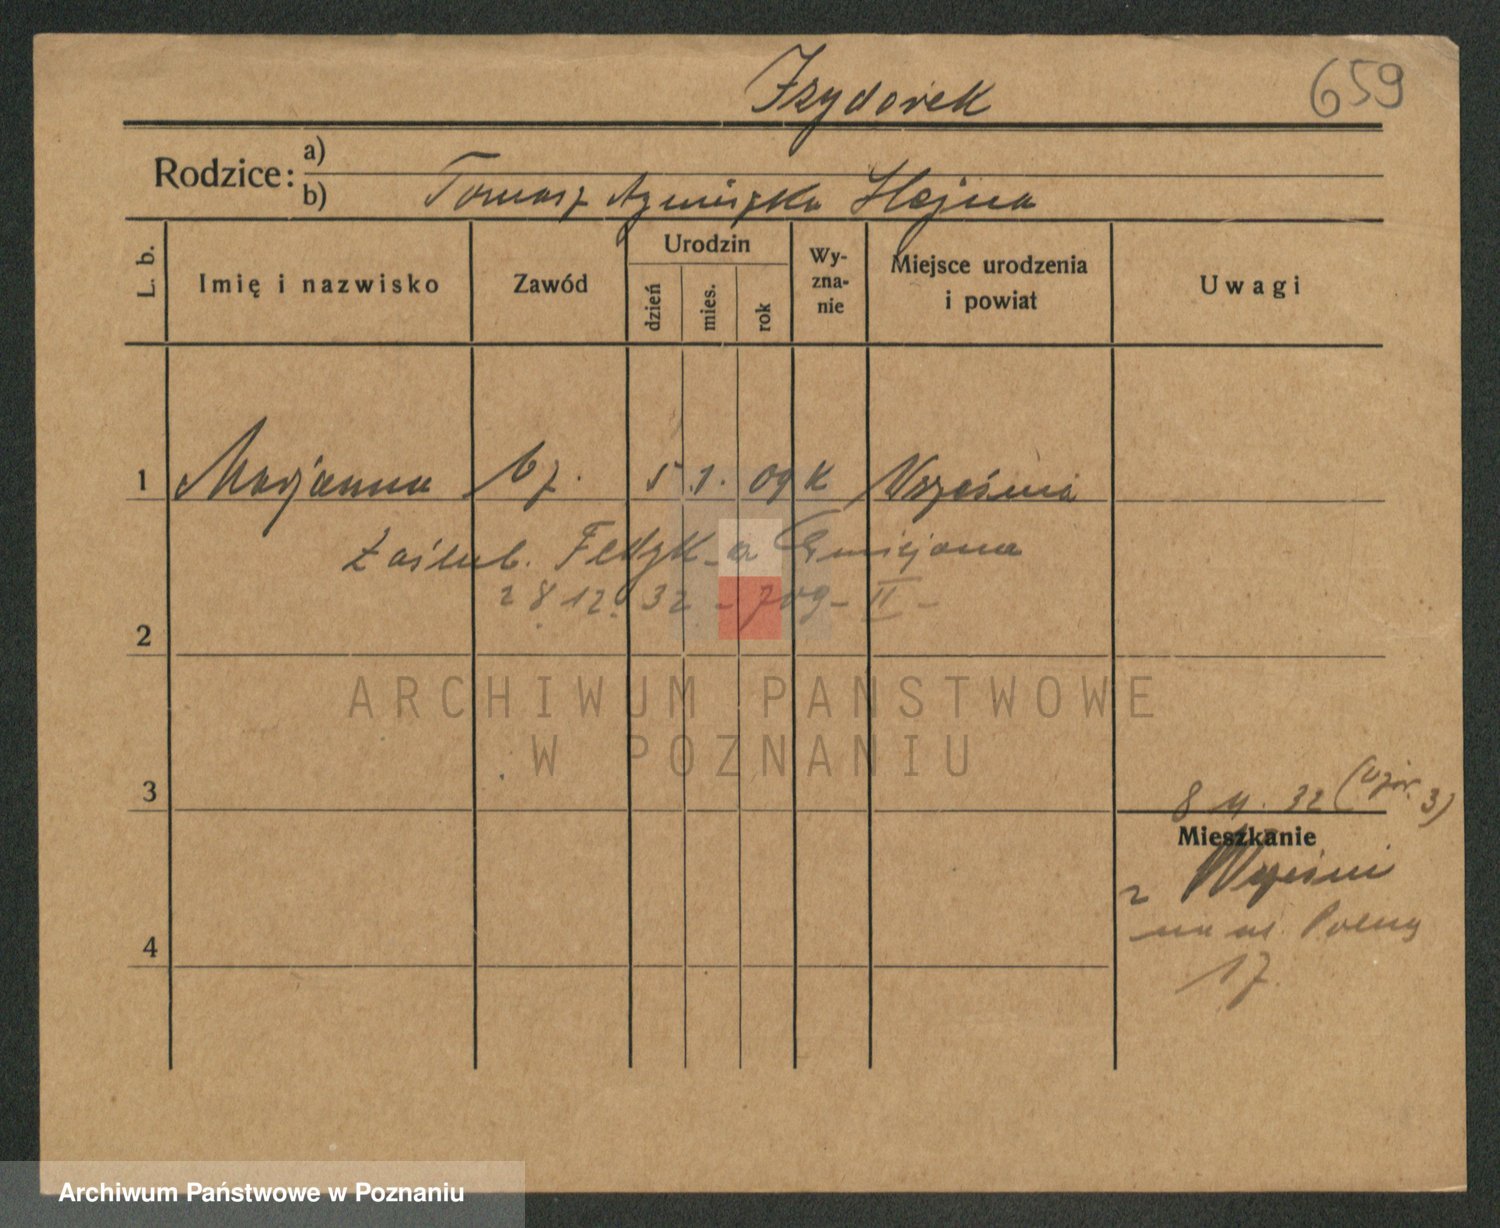 Izydorek
659
Rodzice:
a)
b) Tomasz Agnieszka Hejna
L. b.
Imię i nazwisko
Zawód
Urodzin
dzień
mies.
rok
Wy-
zna-
nie
Miejsce urodzenia
i powiat
Uwagi
1 Marjanna bz. 5 1. 09 K Września
Zaślub. a
28 12. 32 - 709 - II -
2
ARCHIWUM PAŃSTWOWE
W POZNANIU
3
8 11. 32 3)
Mieszkanie
z Wrześni
na ul. Polną
17.
4
Archiwum Państwowe w Poznaniu